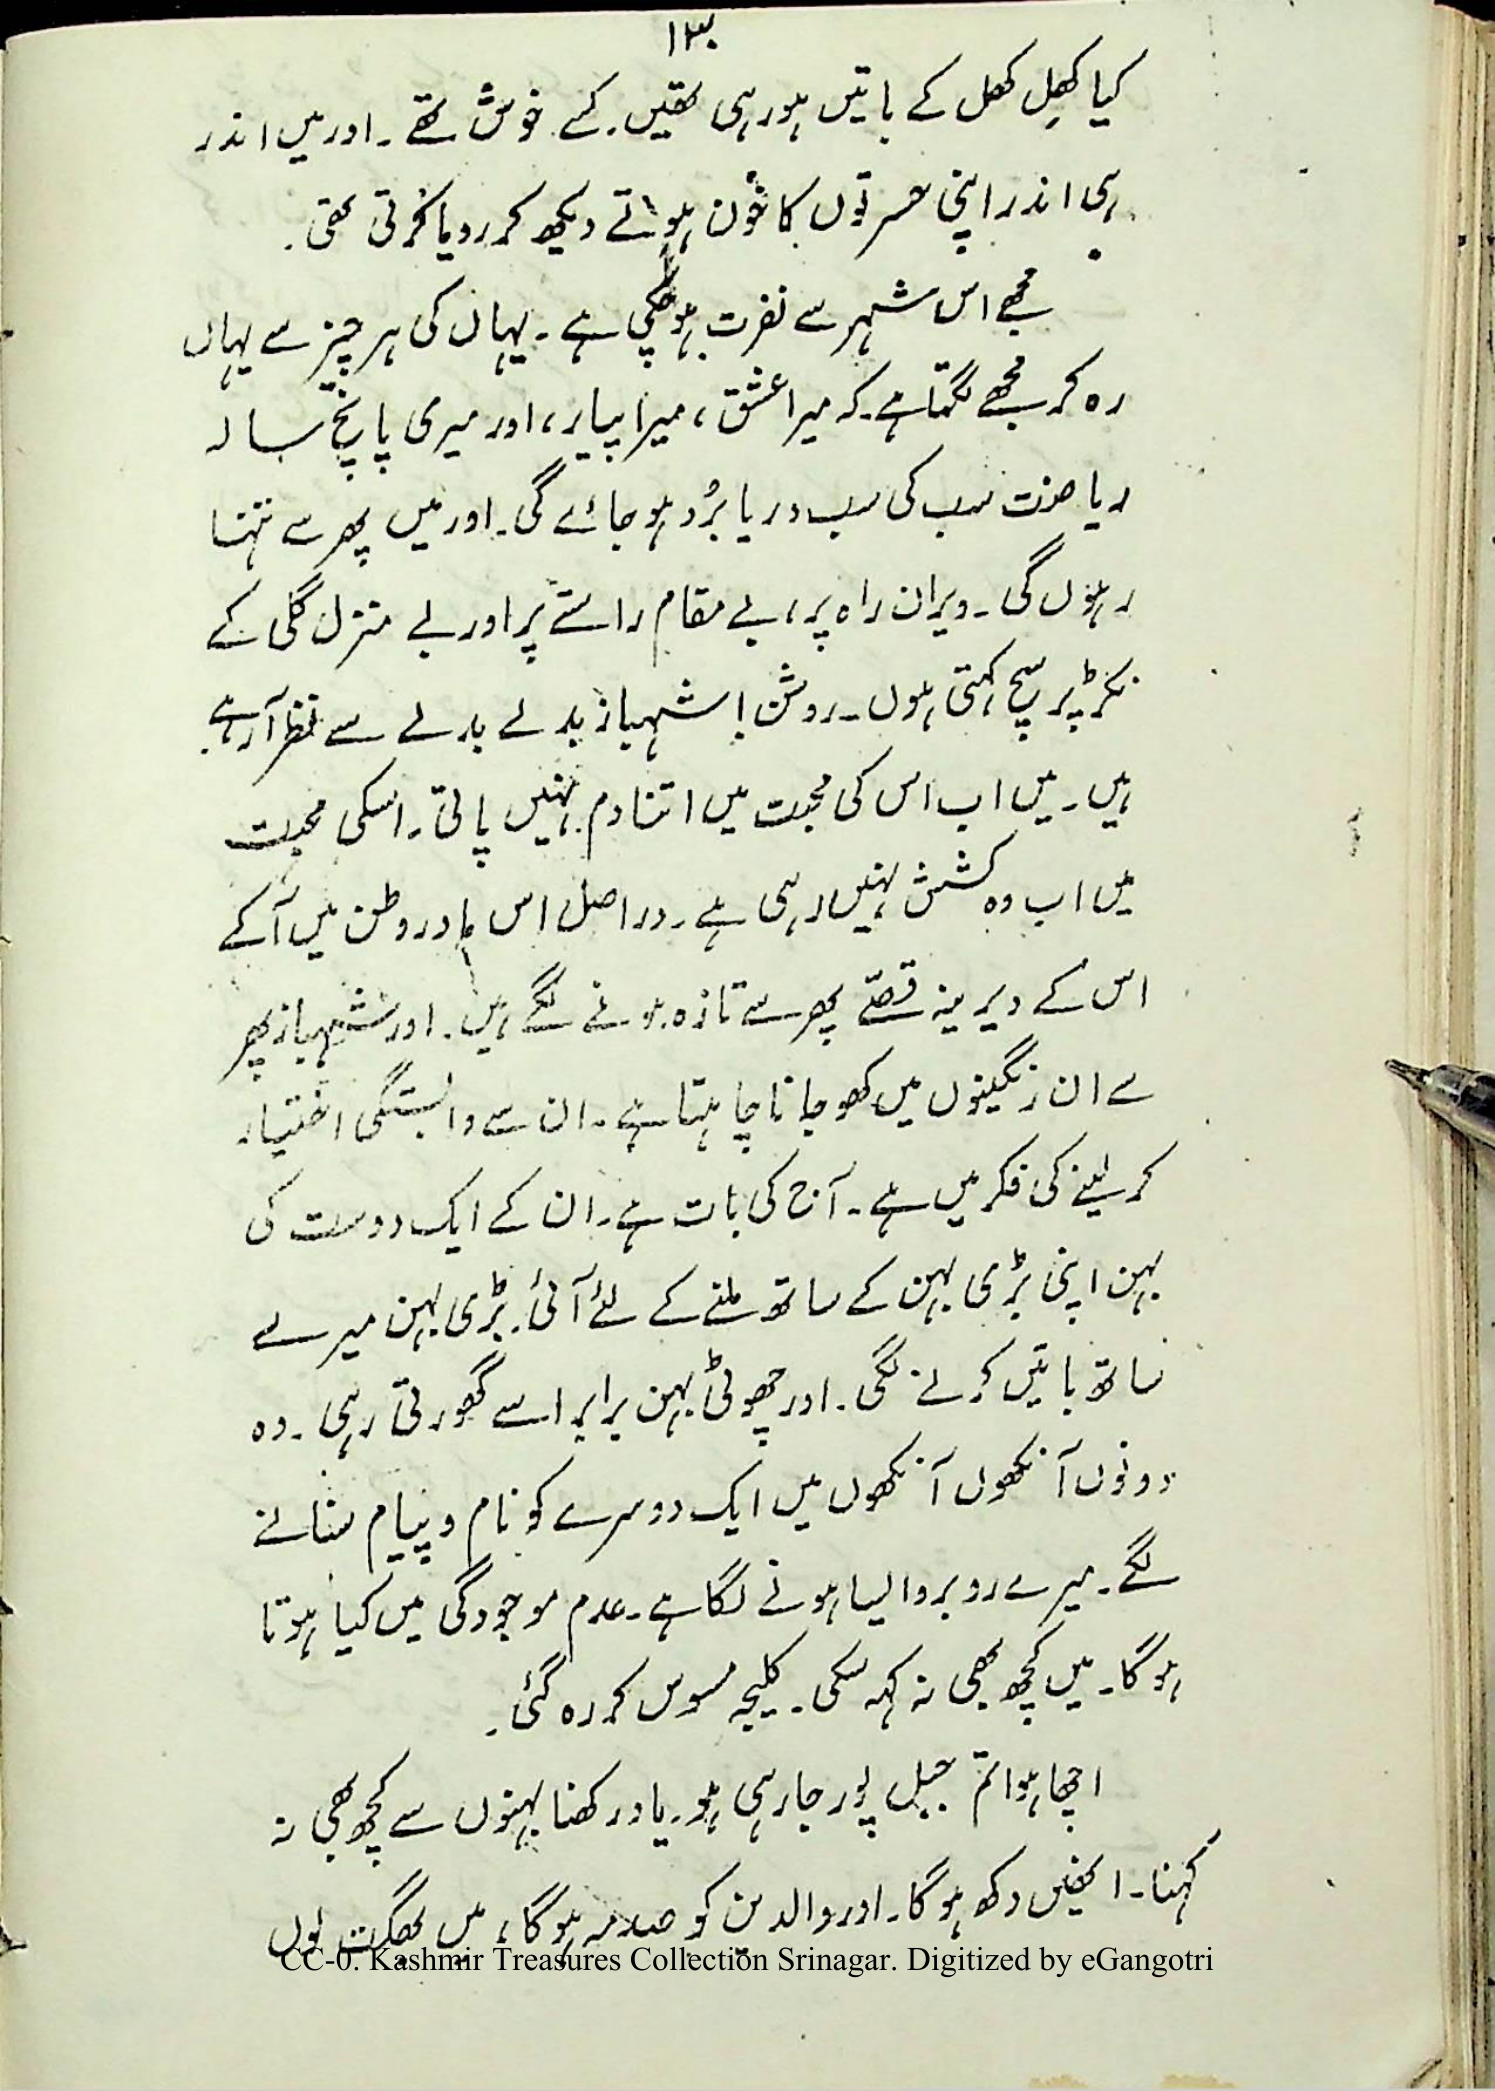 ۱۳۰
کیا کھِل کھل کے باتیں ہو رہی تھیں۔ کسے خوش تھے۔ اور میں اندر
ہی اندر اپنی حسرتوں کا خون ہوتے دیکھ کر رویا کرتی تھی۔
مجھے اس شہر سے نفرت ہو چکی ہے۔ یہاں کی ہر چیز سے یہاں
رہ کر مجھے لگتا ہے۔ کہ میرا عشق، میرا پیار، اور میری پانچ سالہ
ریاضت سب کی سب دریا بُرد ہو جائے گی۔ اور میں پھر سے تنہا
رہوں گی۔ ویران راہ پر، بے مقام راستے پر اور بے منزل گلی کے
نکڑ پر سچ کہتی ہوں۔ روشن! شہباز بدلے بدلے سے نظر آرہے
ہیں۔ میں اب اس کی محبت میں اتنا دم نہیں پاتی۔ اسکی محبت
میں اب وہ کشش نہیں رہی ہے۔ دراصل اس مادر وطن میں آکے
اس کے دیرینہ قصّے پھر سے تازہ ہونے لگے ہیں۔ اور شہباز پھر
سے ان رنگینوں میں کھو جانا چاہتا ہے۔ ان سے وابستگی اختیار
کر لینے کی فکر میں ہے۔ آج کی بات ہے۔ ان کے ایک دوست کی
بہن اپنی بڑی بہن کے ساتھ ملنے کے لئے آئی۔ بڑی بہن میرے
ساتھ باتیں کرنے لگی۔ اور چھوٹی بہن برابر اسے گھورتی رہی۔ وہ
دونوں آنکھوں آنکھوں میں ایک دوسرے کو نام و پیام سنانے
لگے۔ میرے روبرو ایسا ہونے لگا ہے۔ عدم موجودگی میں کیا ہوتا
ہوگا۔ میں کچھ بھی نہ کہہ سکی۔ کلیجہ مسوس کر رہ گئی۔
اچھا ہوا تم جبل پور جا رہی ہو۔ یاد رکھنا بہنوں سے کچھ بھی نہ
کہنا۔ انھیں دکھ ہوگا۔ اور والدین کو صدمہ ہوگا، میں بھگت لوں
CC-0. Kashmir Treasures Collection Srinagar. Digitized by eGangotri